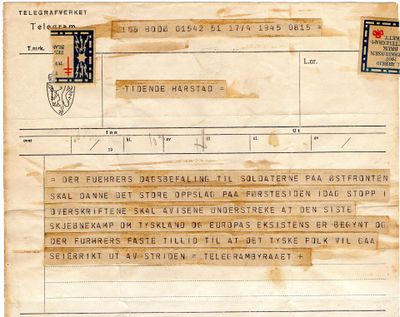 TELEGRAFVERKET
Telegram
166 BODØ 01542 51 17/4 1945 0815 =
T.mrk.
L.nr.
TIDENDE HARSTAD =
Inn
Ut
/19
kl.
av
til
kl.
av
= DER FUEHRERS DAGSBEFALING TIL SOLDATERNE PAA ØSTFRONTEN
SKAL DANNE DET STORE OPPSLAG PAA FØRSTESIDEN IDAG STOPP I
OVERSKRIFTENE SKAL AVISENE UNDERSTREKE AT DEN SISTE
SKJEBNEKAMP OM TYSKLAND OG EUROPAS EKSISTENS ER BEGYNT OG
DER FURHRERS FASTE TILLID TIL AT DET TYSKE FOLK VIL GAA
SEIERRIKT UT AV STRIDEN = TELEGRAMBYRAAET +